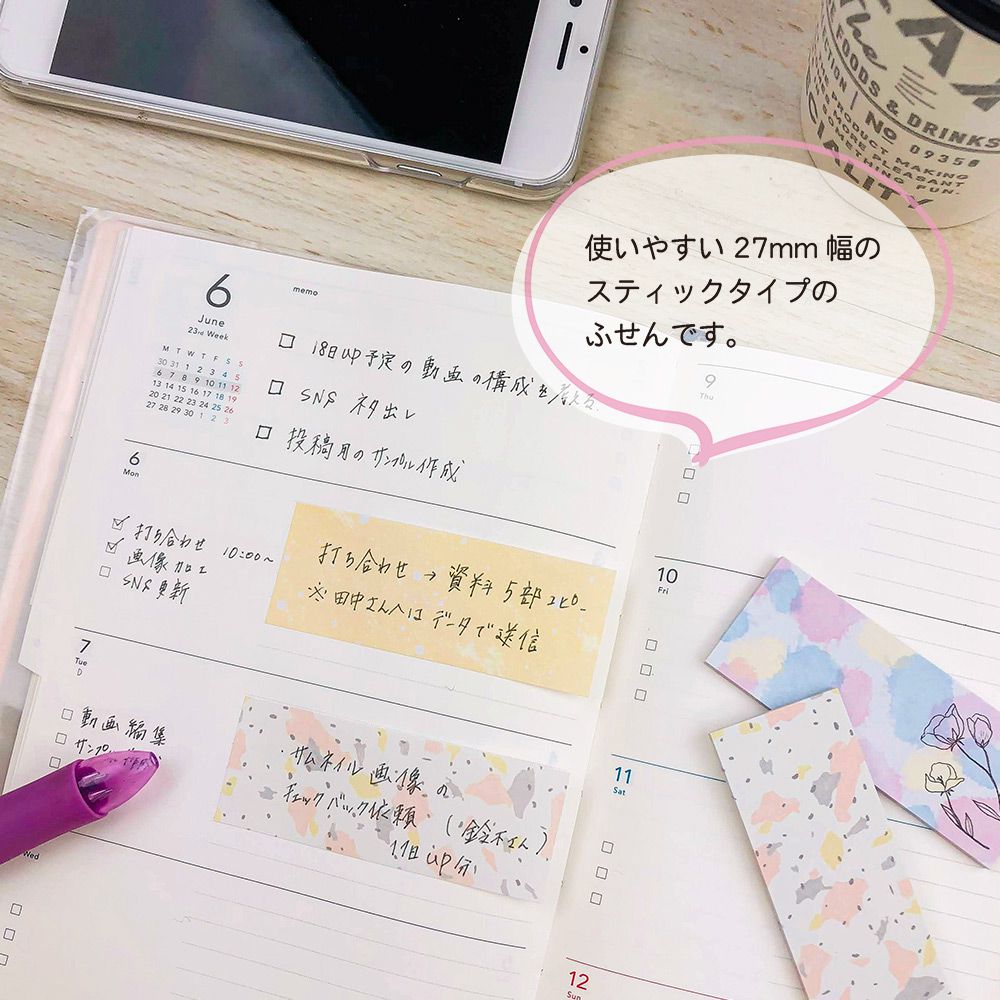 使いやすい 27mm 幅の
スティックタイプの
ふせんです。
THE
FOODS & DRINKS
No 0935
THE PRODUCT MAKING
SOMETHING FUN.
6
June
23rd Week
memo
M T W T F S S
30 31 1 2 3 4 5
6 7 8 9 10 11 12
13 14 15 16 17 18 19
20 21 22 23 24 25 26
27 28 29 30 1 2 3
□ 18日UP予定の動画の構成を考える.
□ SNS ネタ出し
□ 投稿用のサンプル作成
6
Mon
☑ 打ち合わせ 10:00~
☑ 画像加工
□ SNS更新
打ち合わせ → 資料 5部 コピー
※ 田中さんへは データで送信
7
Tue
D
□ 動画編集
□ サンプル作成
サムネイル画像の
チェックバック依頼 (鈴木さん)
11日UP分
Wed
9
Thu
10
Fri
11
Sat
12
Sun